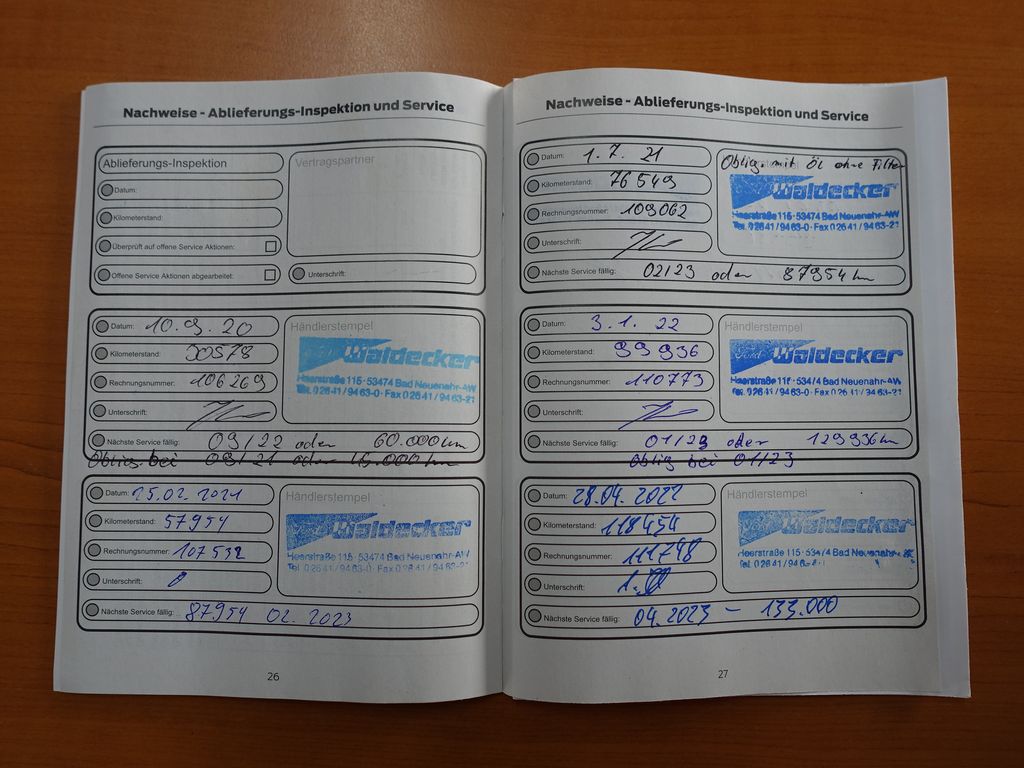 Nachweise - Ablieferungs-Inspektion und Service
Ablieferungs-Inspektion
Vertragspartner
Datum:
Kilometerstand:
Überprüft auf offene Service Aktionen:
Offene Service Aktionen abgearbeitet:
Unterschrift:
Datum: 10.9.20
Händlerstempel
Kilometerstand: 30578
Waldecker
Rechnungsnummer: 106269
Heerstraße 115 · 53474 Bad Neuenahr-AW
Tel. 02641/9463-0 · Fax 02641/9463-21
Unterschrift:
Nächste Service fällig: 09/22 oder 60.000km
Oblig. bei 09/21 oder 45.000km
Datum: 25.02.2021
Händlerstempel
Kilometerstand: 57954
Waldecker
Rechnungsnummer: 107532
Heerstraße 115 · 53474 Bad Neuenahr-AW
Tel. 02641/9463-0 · Fax 02641/9463-21
Unterschrift:
Nächste Service fällig: 87954 02.2023
26
Nachweise - Ablieferungs-Inspektion und Service
Datum: 1.7.21
Oblig. mit Öl ohne Filter
Kilometerstand: 76549
Waldecker
Rechnungsnummer: 109062
Heerstraße 115 · 53474 Bad Neuenahr-AW
Tel. 02641/9463-0 · Fax 02641/9463-21
Unterschrift:
Nächste Service fällig: 02/23 oder 87954km
Datum: 3.1.22
Händlerstempel
Kilometerstand: 99936
Ford Waldecker
Rechnungsnummer: 110773
Heerstraße 115 · 53474 Bad Neuenahr-AW
Tel. 02641/9463-0 · Fax 02641/9463-21
Unterschrift:
Nächste Service fällig: 01/23 oder 129936km
Oblig bei 01/23
Datum: 28.04.2022
Händlerstempel
Kilometerstand: 118454
Waldecker
Rechnungsnummer: 111748
Heerstraße 115 · 53474 Bad Neuenahr
Tel. 02641/9463-0
Unterschrift:
Nächste Service fällig: 04.2023 - 133.000
27